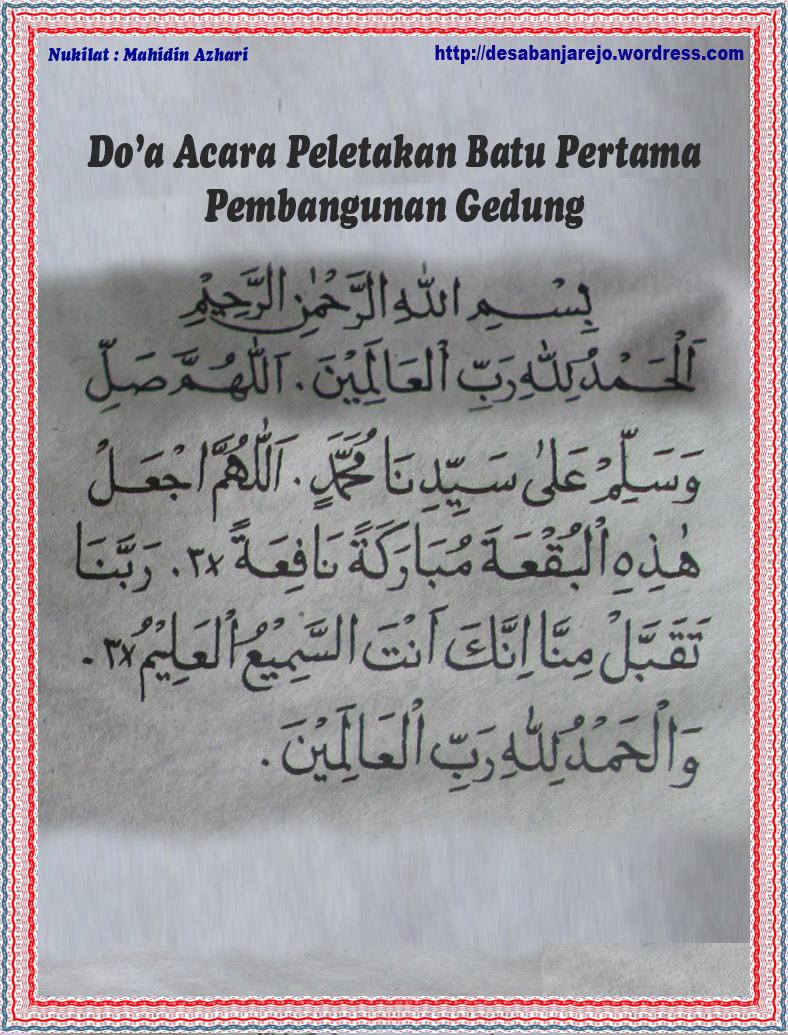 Nukilat : Mahidin Azhari
http://desabanjarejo.wordpress.com
Do'a Acara Peletakan Batu Pertama
Pembangunan Gedung
بِسْمِ اللهِ الرَّحْمٰنِ الرَّحِيْمِ
اَلْحَمْدُ لِلّٰهِ رَبِّ الْعَالَمِيْنَ . اَللّٰهُمَّ صَلِّ
وَسَلِّمْ عَلٰى سَيِّدِنَا مُحَمَّدٍ . اَللّٰهُمَّ اجْعَلْ
هٰذِهِ الْبُقْعَةَ مُبَارَكَةً نَافِعَةً ٣x . رَبَّنَا
تَقَبَّلْ مِنَّا اِنَّكَ اَنْتَ السَّمِيْعُ الْعَلِيْمُ ٣x .
وَالْحَمْدُ لِلّٰهِ رَبِّ الْعَالَمِيْنَ .